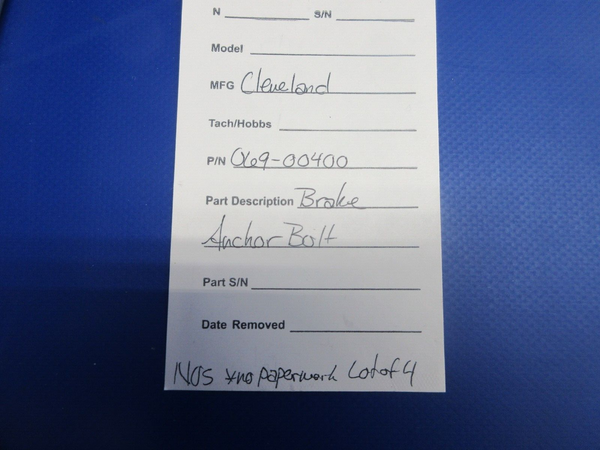 N S/N
Model
MFG Cleveland
Tach/Hobbs
P/N 069-00400
Part Description Brake
Anchor Bolt
Part S/N
Date Removed
NOS *no paperwork Lot of 4